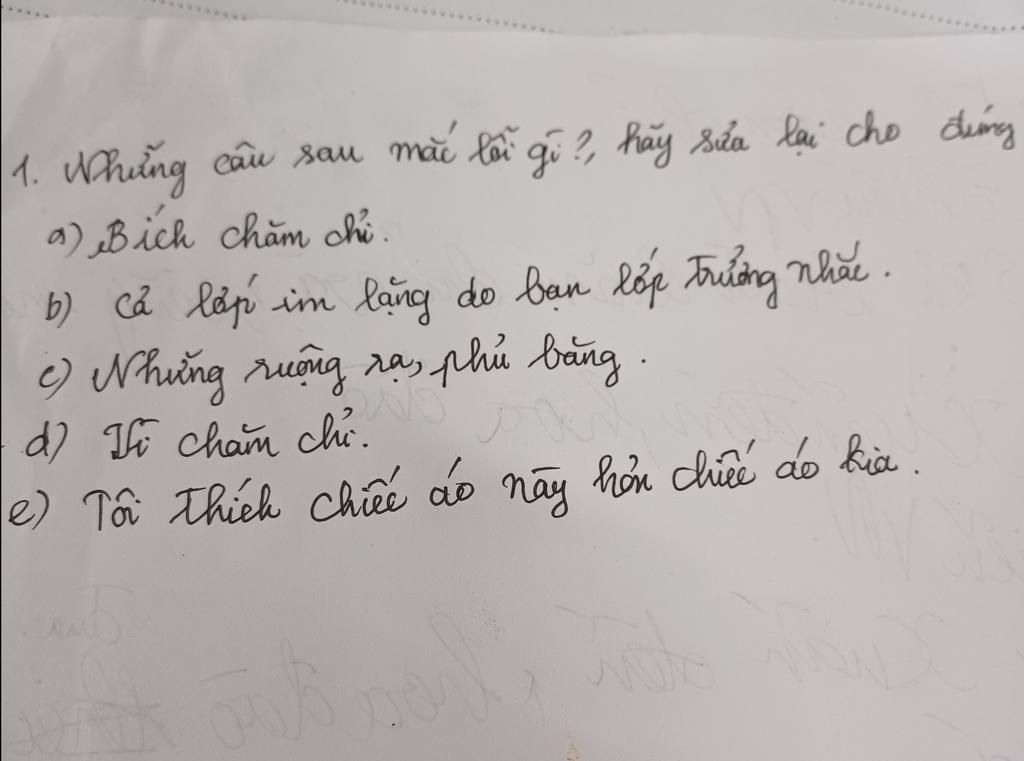 1. Những câu sau mắc lỗi gì?, hãy sửa lại cho đúng
a) Bích chăm chỉ.
b) Cả lớp im lặng do bạn lớp trưởng nhắc.
c) Những ruộng rạ, phủ băng.
d) Vì chăm chỉ.
e) Tôi thích chiếc áo này hơn chiếc áo kia.